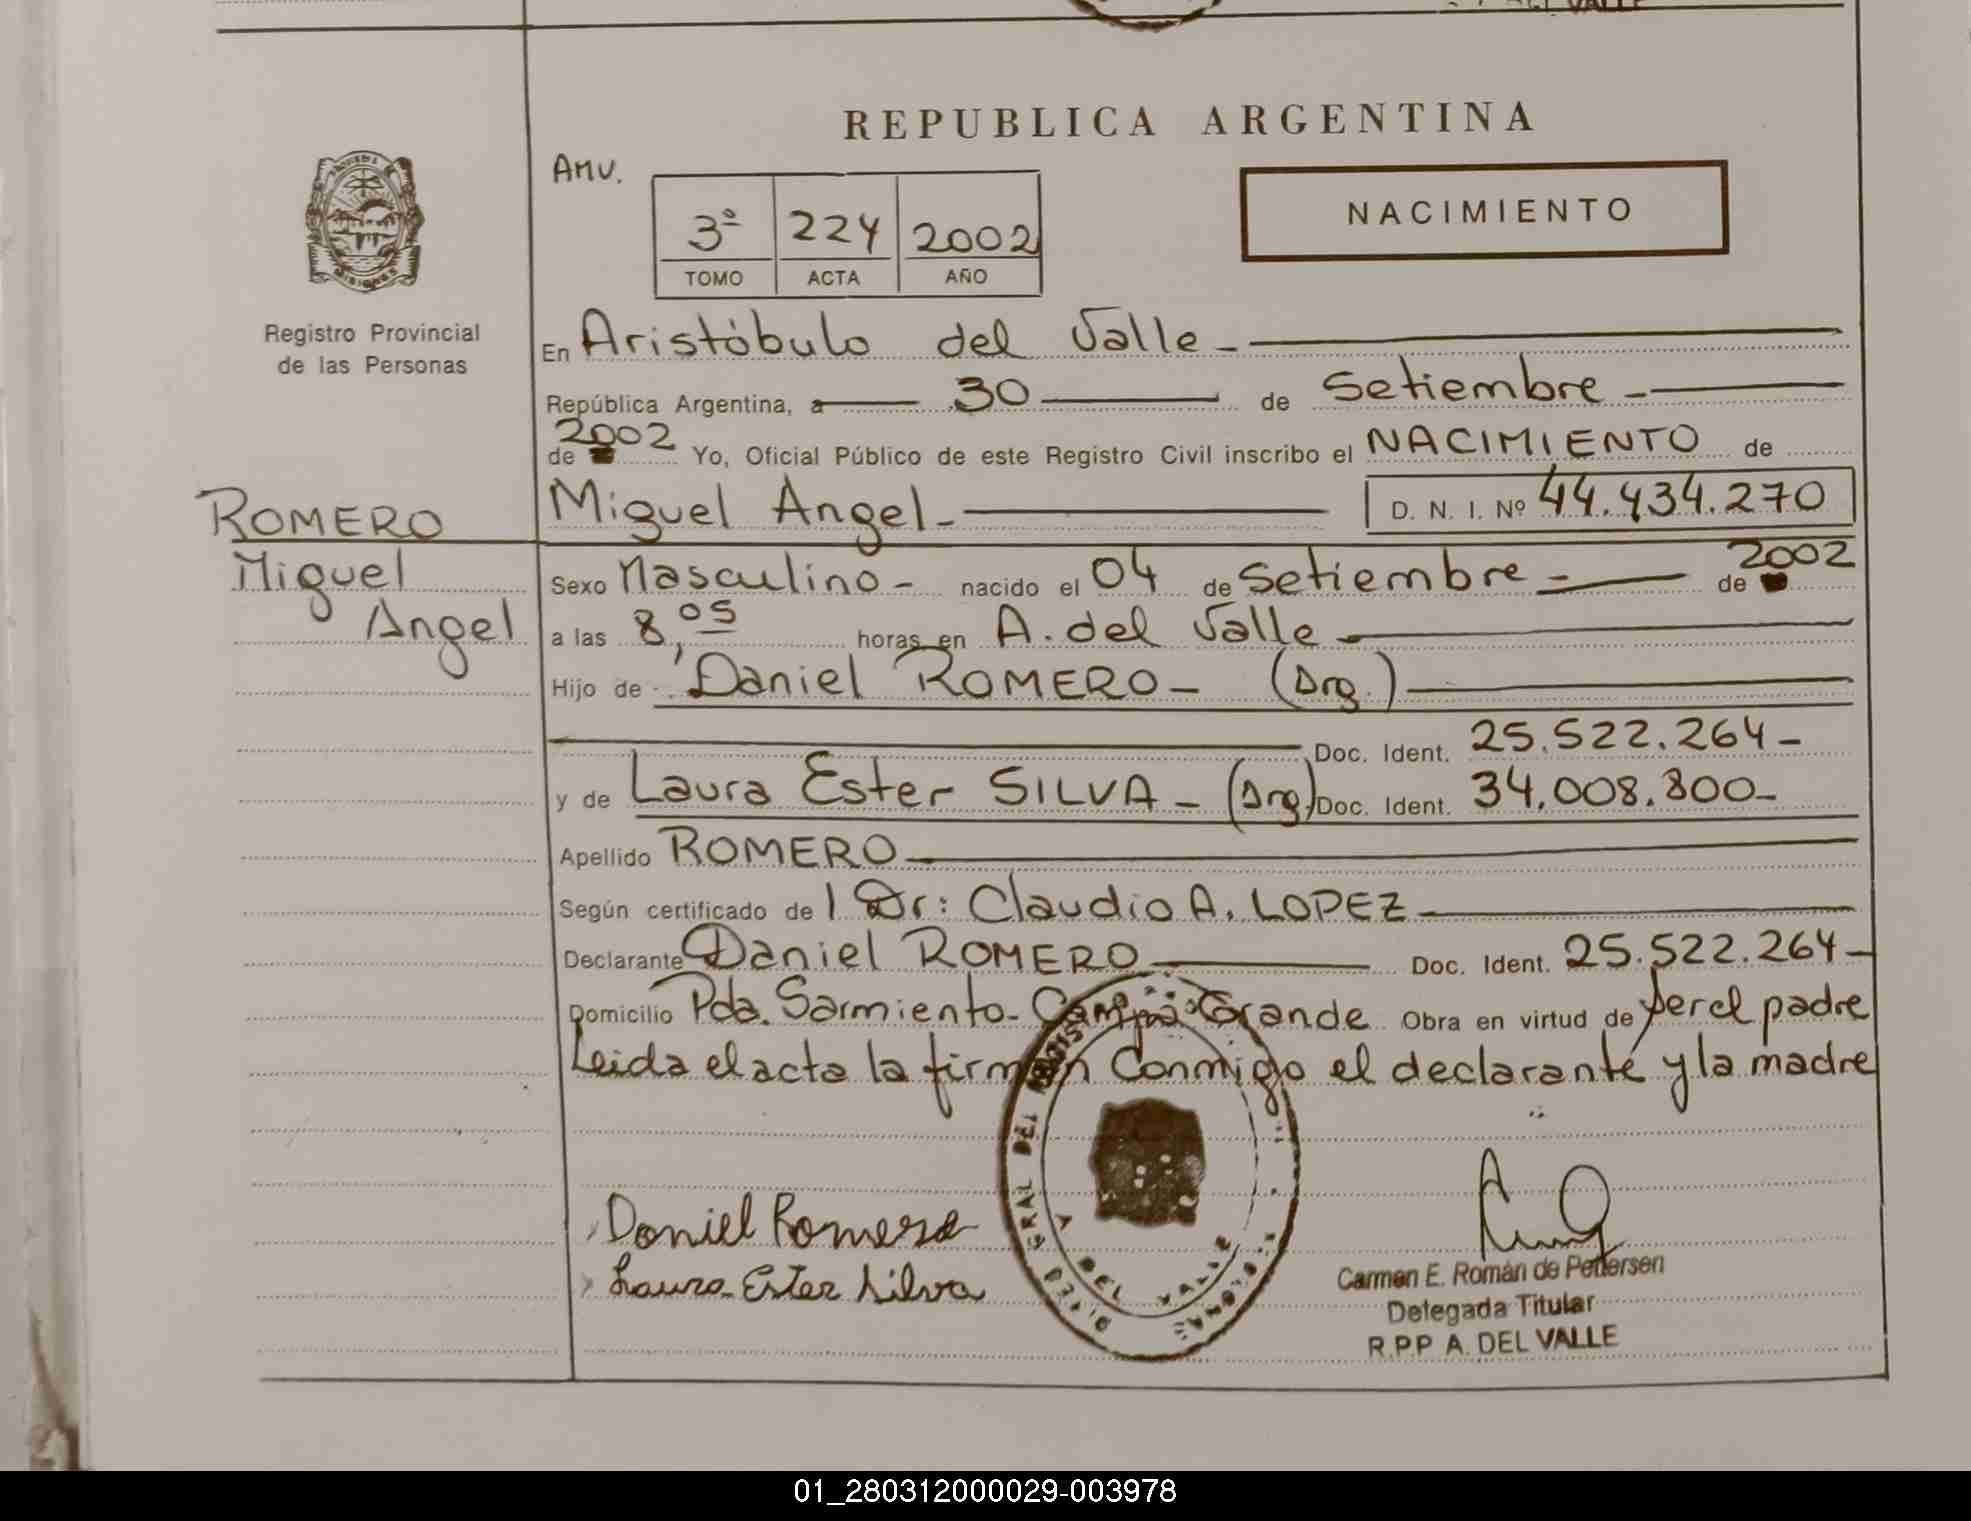 REPUBLICA ARGENTINA
AMV.
3º 224 2002
TOMO ACTA AÑO
NACIMIENTO
MISIONES
Registro Provincial
de las Personas
En Aristóbulo del Valle -
República Argentina, a 30 de Setiembre -
de 2002 Yo, Oficial Público de este Registro Civil inscribo el NACIMIENTO de
Miguel Angel - D. N. I. Nº 44.434.270
ROMERO
Miguel
Angel
Sexo Masculino - nacido el 04 de Setiembre - de 2002
a las 8,05 horas en A. del Valle
Hijo de Daniel ROMERO - (Arg.)
Doc. Ident. 25.522.264 -
y de Laura Ester SILVA - (Arg.) Doc. Ident. 34.008.800 -
Apellido ROMERO
Según certificado de l Dr: Claudio A. LOPEZ
Declarante Daniel ROMERO Doc. Ident. 25.522.264 -
Domicilio Pda. Sarmiento - Campo Grande Obra en virtud de ser el padre
Leida el acta la firman conmigo el declarante y la madre
Daniel Romero
Laura Ester Silva
GRAL DEL
A DEL VALLE
Carmen E. Román de Pettersen
Delegada Titular
R.P.P A. DEL VALLE
01_280312000029-003978